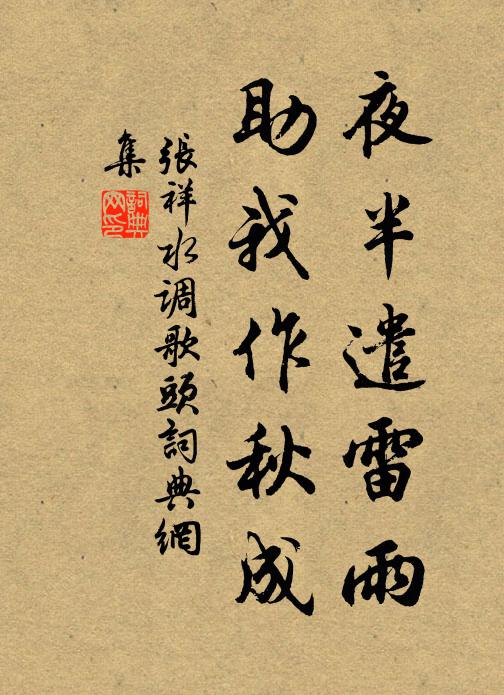 夜半遣雷雨
助我作秋成
張祥水調歌頭詞典網
集
詞典
网印